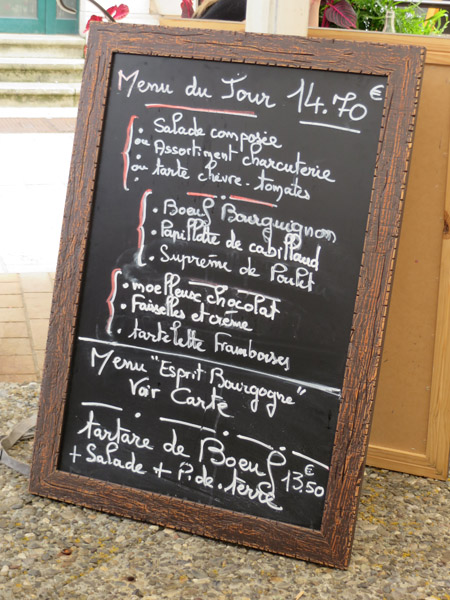 Menu du Jour 14.70€
• Salade composée
ou Assortiment charcuterie
ou tarte chèvre-tomates
• Boeuf Bourguignon
• Papillote de cabillaud
• Suprême de Poulet
• moelleux chocolat
• Faisselles et crème
• tartelette Framboises
Menu "Esprit Bourgogne"
Voir Carte
tartare de Boeuf 13,50€
+ Salade + P. de. terre